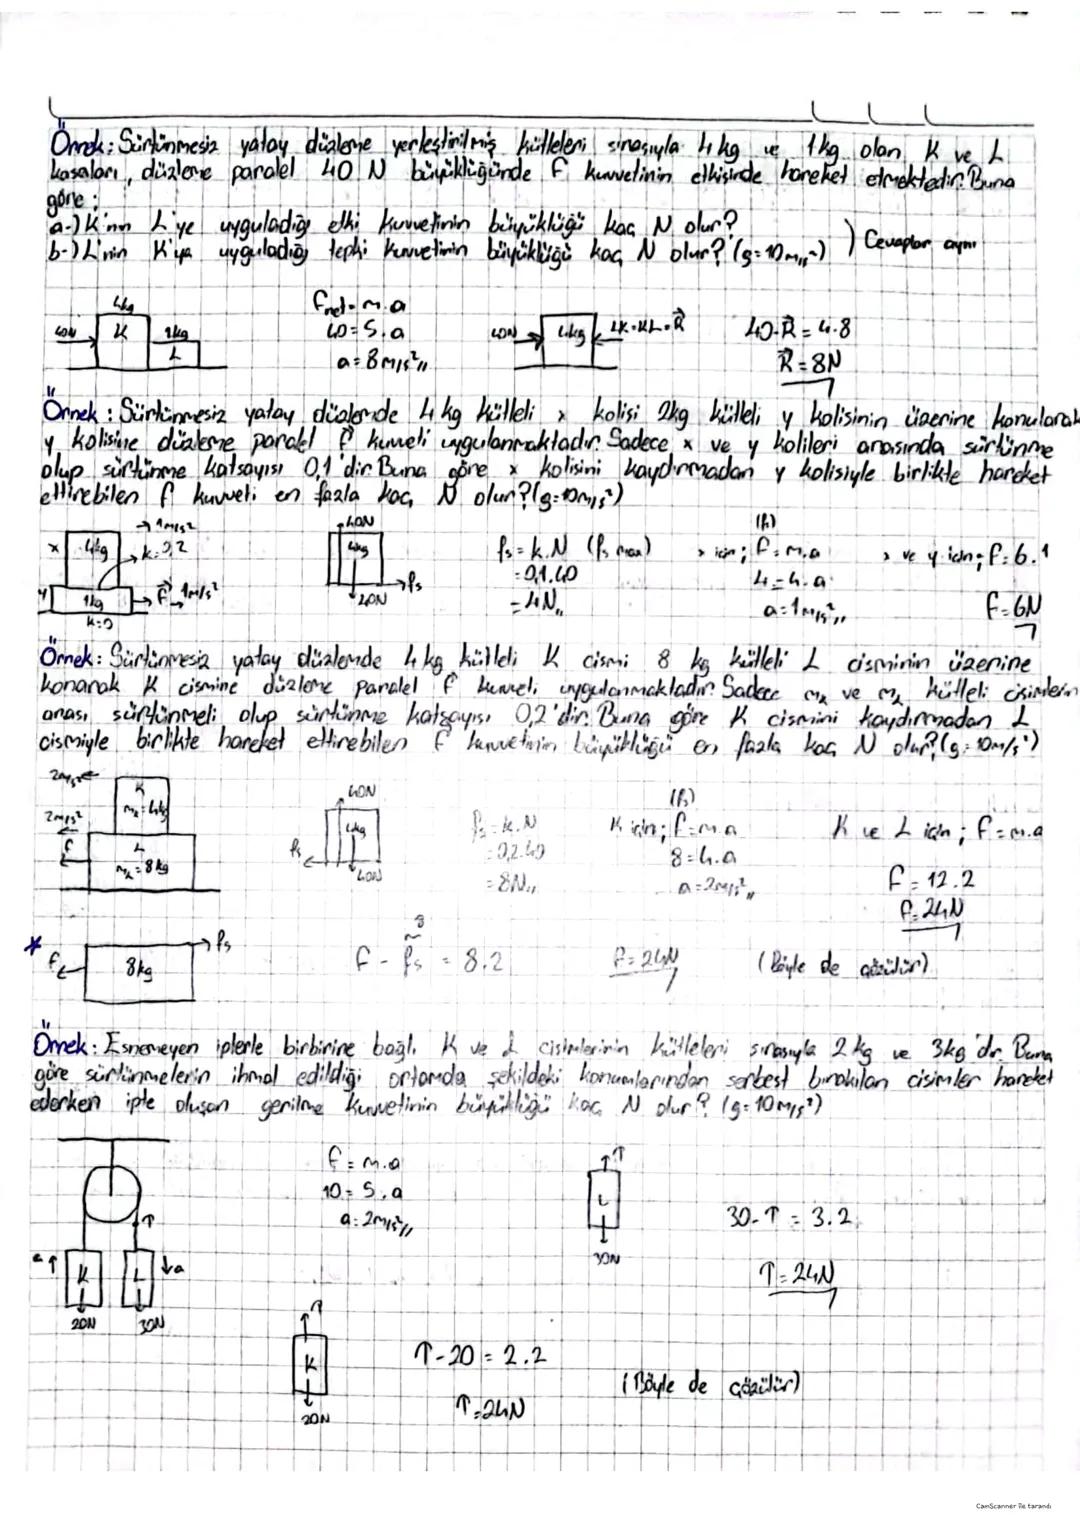 Örnek: Sürtünmesiz yatay düzleme yerleştirilmiş kütleleri sırasıyla 4 kg ve 1kg olan K ve L
kasaları, düzleme paralel 40 N büyüklüğünde F kuvvetinin etkisinde hareket etmektedir. Buna
göre;
a-) K'nın L'ye uyguladığı etki kuvvetinin büyüklüğü kaç N olur?
b-) L'nin K'ya uyguladığı tepki kuvvetinin büyüklüğü kaç N olur? (g=10m/s²) ) Cevaplar aynı
4kg
40N K 1kg
L
Fnet=m.a
40=5.a
a=8m/s²
40N 4kg LK=KL=R
40-R=4.8
R=8N
Örnek: Sürtünmesiz yatay düzlemde 4 kg kütleli x kolisi 2kg kütleli y kolisinin üzerine konularak
y kolisine düzleme paralel F kuvveti uygulanmaktadır. Sadece x ve y kolileri arasında sürtünme
olup sürtünme katsayısı 0,1'dir. Buna göre x kolisini kaydırmadan y kolisiyle birlikte hareket
ettirebilen F kuvveti en fazla kaç N olur? (g=10m/s²)
→1m/s²
x 4kg
y 1kg F 1m/s²
k=0
40N
4kg
fs
40N
fs=k.N (fs max)
=0,1.40
=4N
(fs)
x için; F=m.a
4=4.a
a=1m/s²
x ve y için; F=6.1
F=6N
Örnek: Sürtünmesiz yatay düzlemde 4 kg kütleli K cismi 8 kg kütleli L cisminin üzerine
konarak K cismine düzleme paralel F kuvveti uygulanmaktadır. Sadece mK ve mL kütleli cisimlerin
arası sürtünmeli olup sürtünme katsayısı 0,2'dir. Buna göre K cismini kaydırmadan L
cismiyle birlikte hareket ettirebilen F kuvvetinin büyüklüğü en fazla kaç N olur? (g=10m/s²)
2m/s²
K
mK=4kg
2m/s²
F L
mL=8kg
40N
4kg
fs
40N
fs=k.N
=0,2.40
=8N
(fs)
K için; F=m.a
8=4.a
a=2m/s²
K ve L için; F=m.a
F=12.2
F=24N
* F 8kg fs
8
F-fs=8.2
F=24N
(Böyle de çözülür)
Örnek: Esnemeyen iplerle birbirine bağlı K ve L cisimlerinin kütleleri sırasıyla 2 kg ve 3kg'dır. Buna
göre sürtünmelerin ihmal edildiği ortamda şekildeki konumlarından serbest bırakılan cisimler hareket
ederken ipte oluşan gerilme kuvvetinin büyüklüğü kaç N olur? (g=10m/s²)
T
a K L a
20N 30N
F=m.a
10=5.a
a=2m/s²
T
L
30N
30-T=3.2
T=24N
T
K
20N
T-20=2.2
T=24N
(Böyle de çözülür)
CamScanner ile tarandı